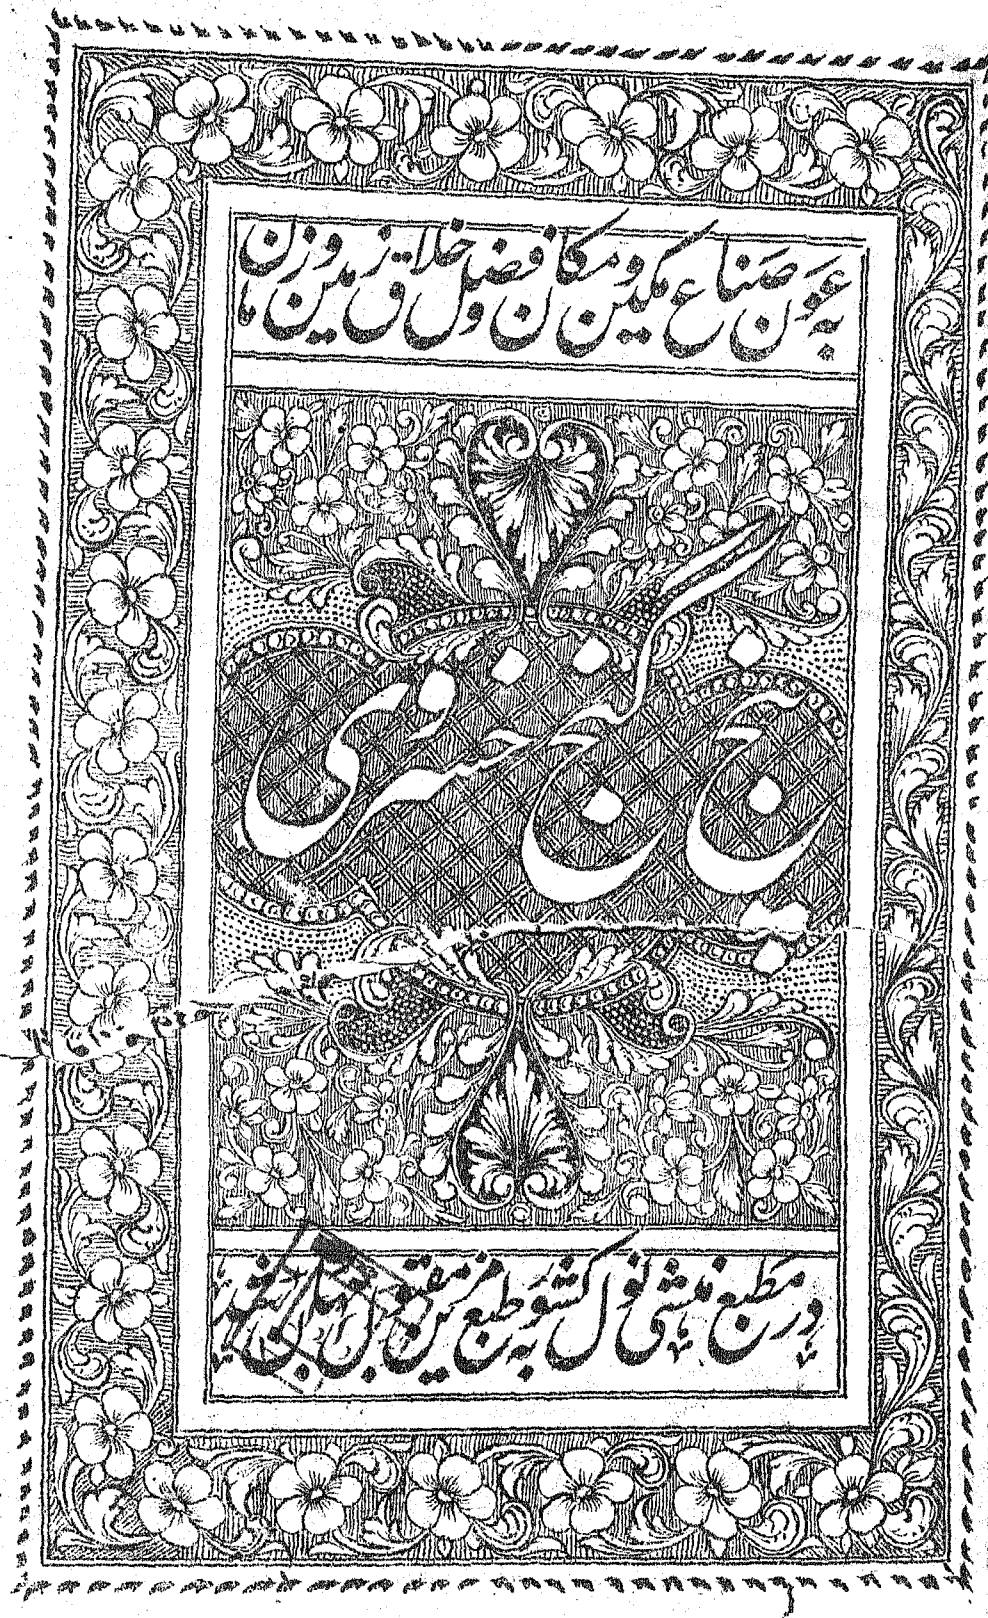 به عون صناع مکین و مکان و فضل خلاق زمین و زمان
پنج گنج خسروی
در مطبع منشی نولکشور به طبع مزین